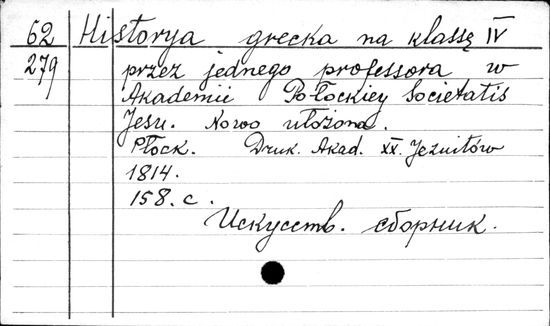 62 Historya grecka na klassę IV
279 przez jednego professora w
Akademii Połockiey Societatis
Jesu. Nowo ułożona.
Płock. Druk. Akad. XX. Jezuitów
1814.
158. c.
Искусств. сборник.